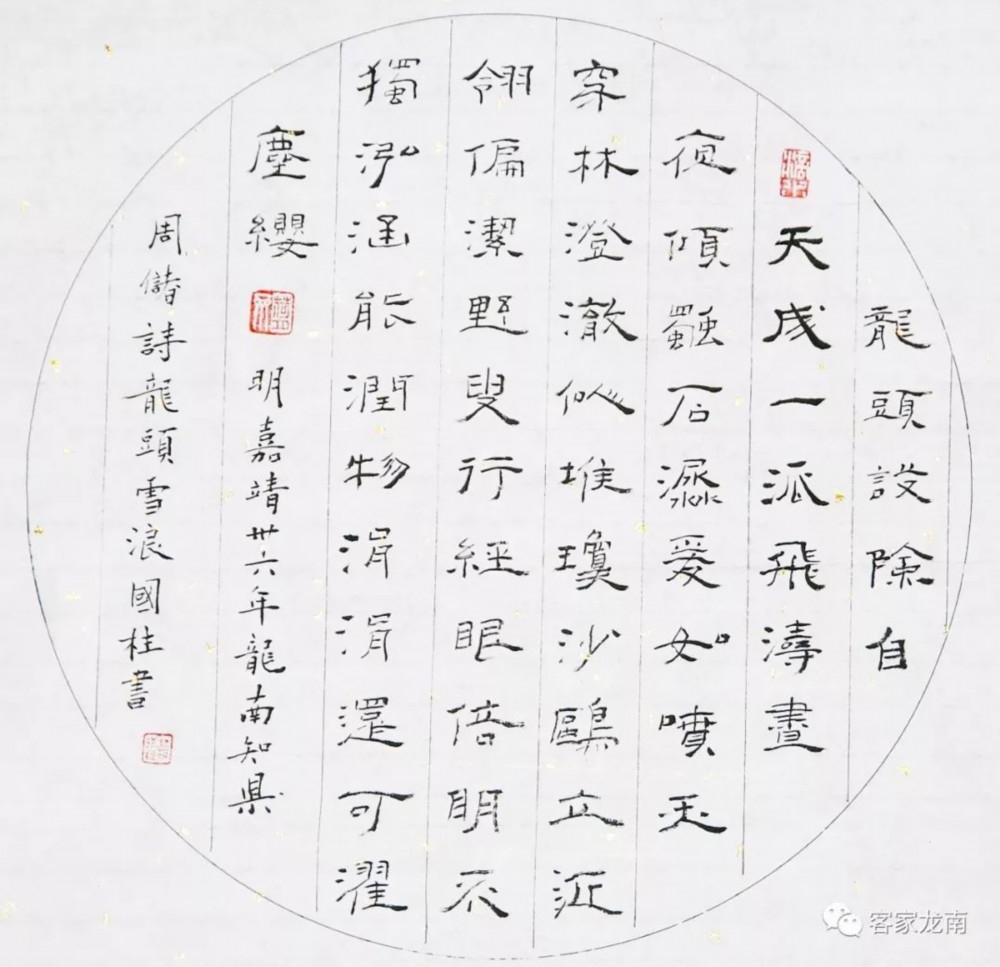 龍頭設除自
天成一派飛濤晝
夜傾石爰如噴玉
穿林澄澈似堆瓊沙鷗立近
翎偏潔野叟行經眼倍明不
獨泓涵能潤物涓涓還可濯
塵纓
明嘉靖卅六年龍南知縣
周詩龍頭雪浪國柱書
客家龙南